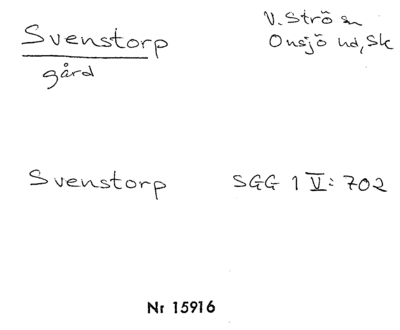 Svenstorp
gård
V. Strö sn
Onsjö hd, Sk
Svenstorp
SGG 1 V: 702
Nr 15916